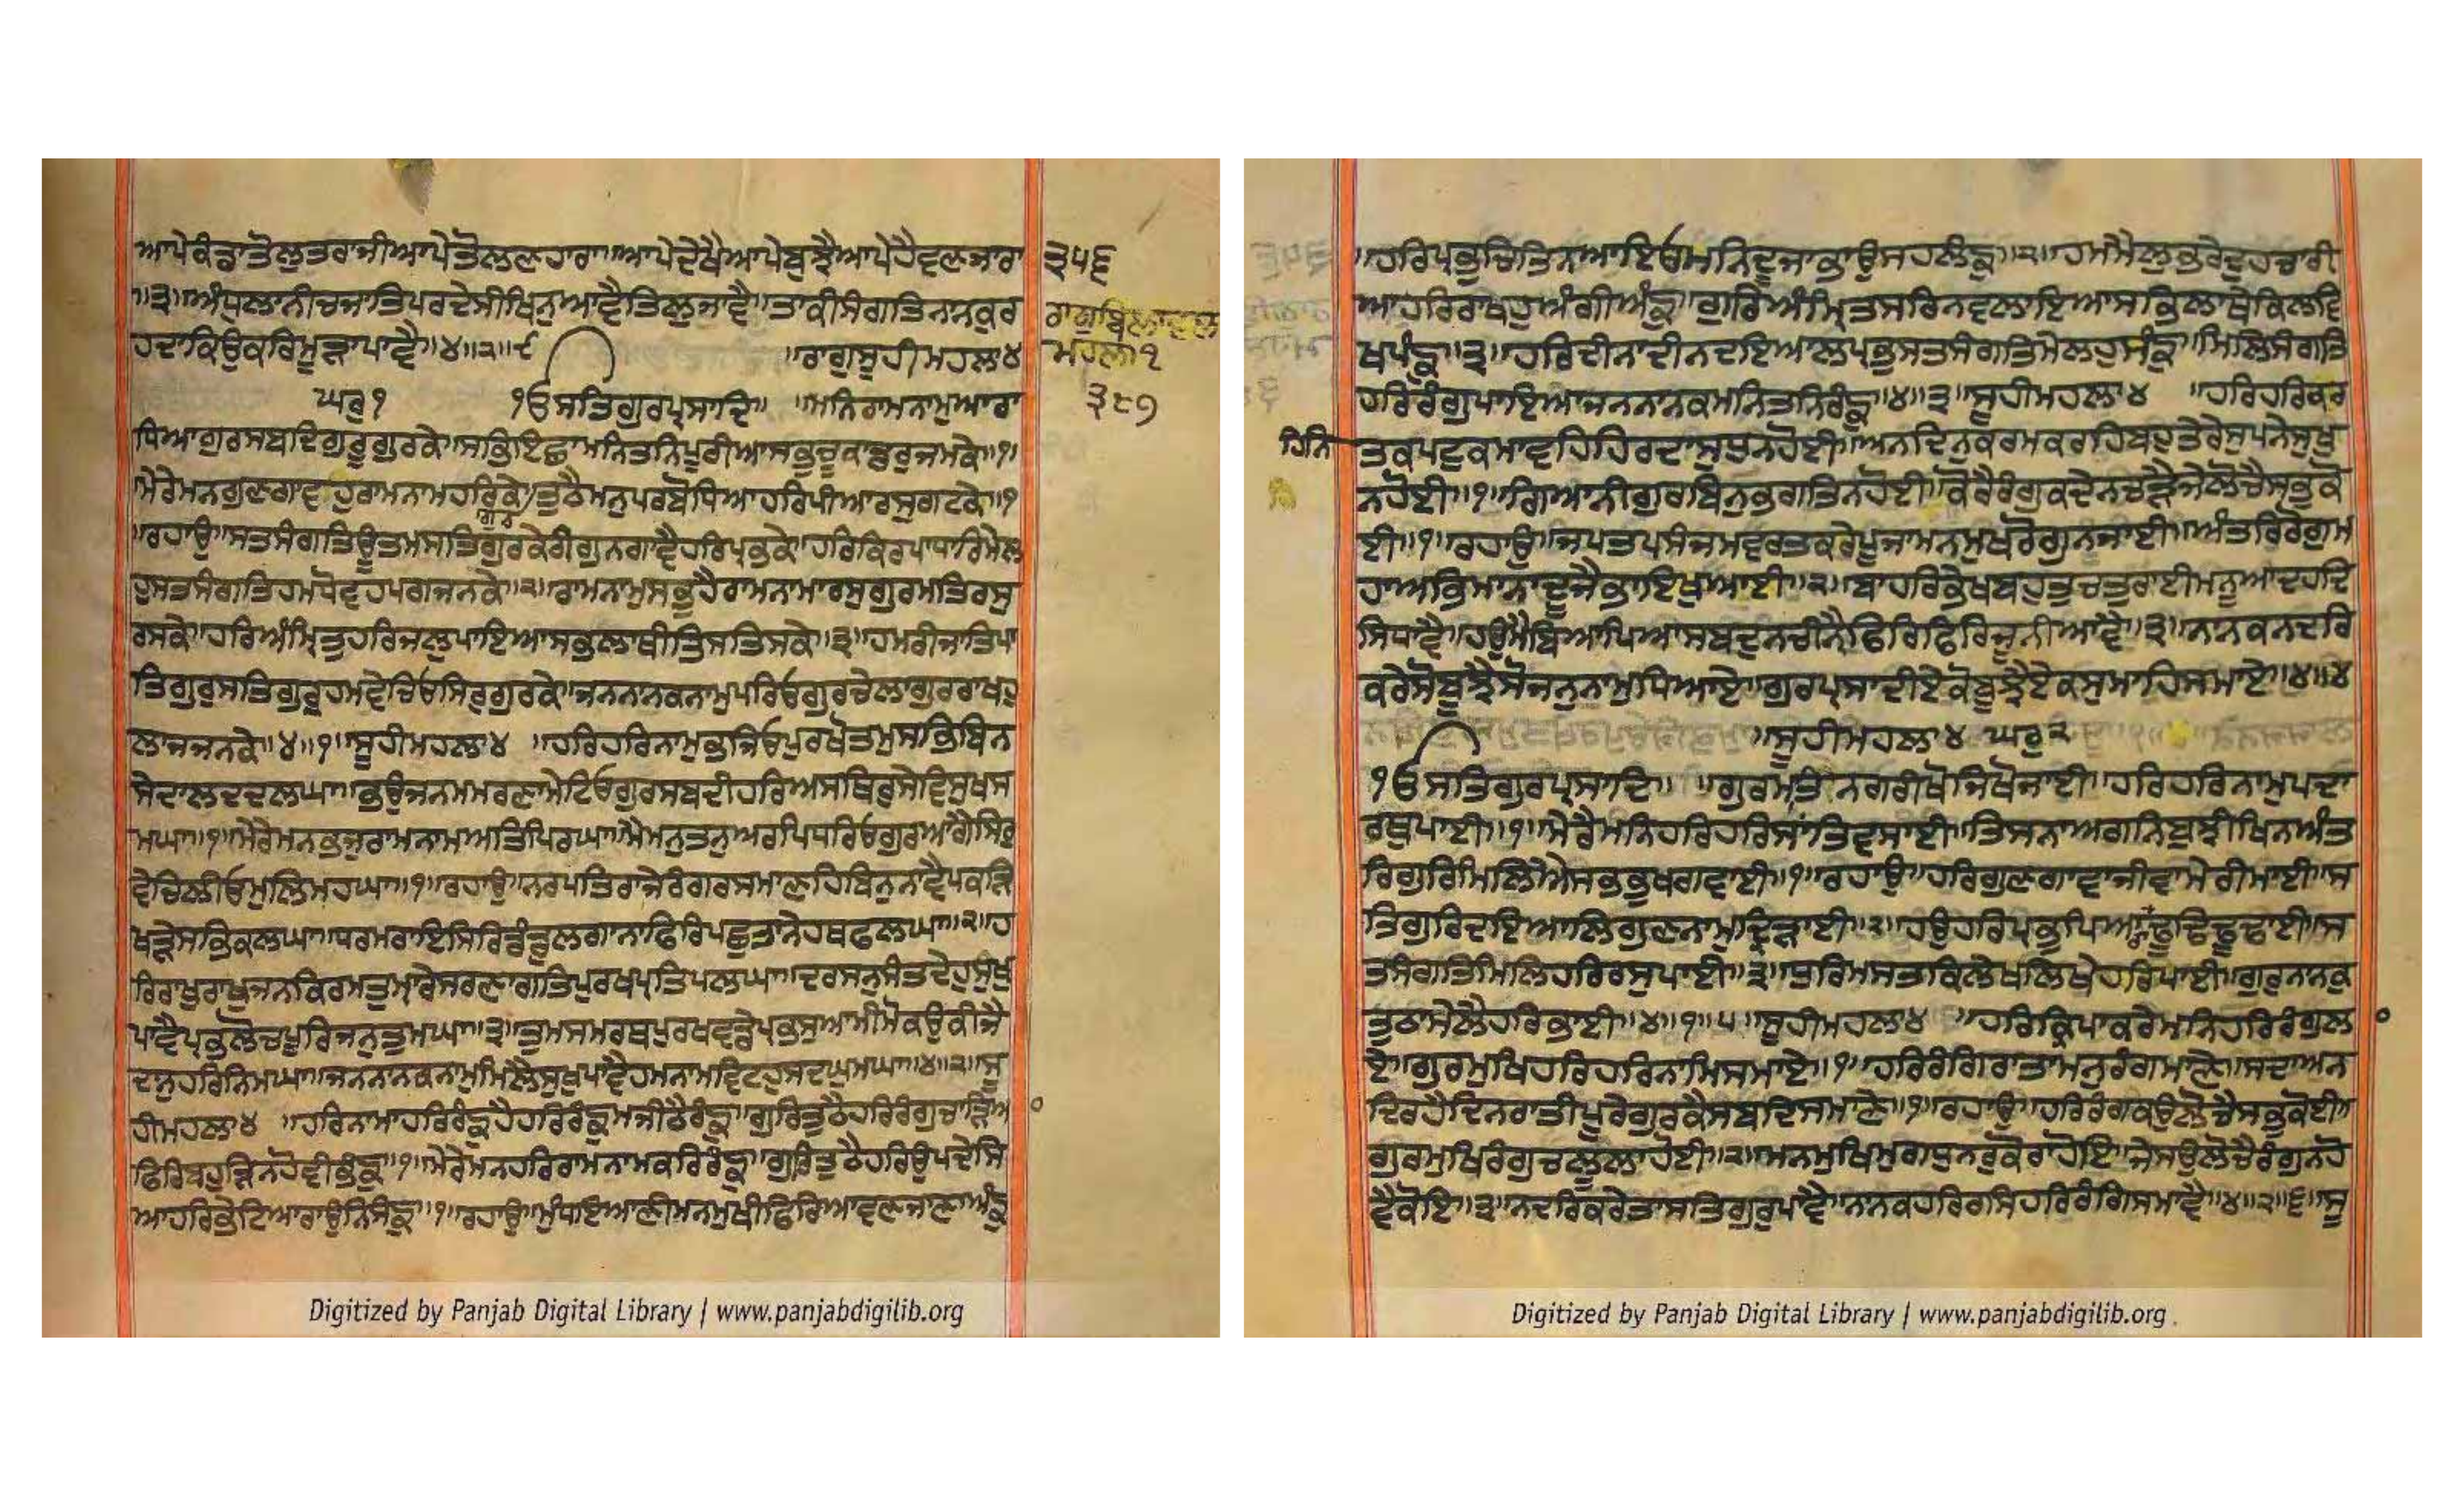 ਆਪੇਕੰਡਾਤੋਲੁਤਰਾਜੀਆਪੇਤੋਲਣਹਾਰਾ॥ਆਪੇਦੇਖੈਆਪੇਬੁਝੈਆਪੇਹੈਵਣਜਾਰਾ
॥੩॥ਅੰਧੁਲਾਨੀਚਜਾਤਿਪਰਦੇਸੀਖਿਨੁਆਵੈਤਿਲੁਜਾਵੈ॥ਤਾਕੀਸੰਗਤਿਨਾਨਕੁਰ
ਹਦਾਕਿਉਕਰਿਮੂੜਾਪਾਵੈ॥੪॥੨॥੯ ॥ਰਾਗੁਸੂਹੀਮਹਲਾ੪
ਘਰੁ੧ ੧ਓਸਤਿਗੁਰਪ੍ਰਸਾਦਿ॥ ॥ਮਨਿਰਾਮਨਾਮੁਆਰਾ
ਧਿਆਗੁਰਸਬਦਿਗੁਰੂਗੁਰਕੇ॥ਸਭਿਇਛਾਮਨਿਤਨਿਪੂਰੀਆਸਭੁਚੂਕਾਡਰੁਜਮਕੇ॥੧॥
ਮੇਰੇਮਨਗੁਣਗਾਵਹੁਰਾਮਨਾਮਹਰਿਕੇ॥ਗੁਰਤੁਠੈਮਨੁਪਰਬੋਧਿਆਹਰਿਪੀਆਰਸੁਗਟਕੇ॥੧
॥ਰਹਾਉ॥ਸਤਸੰਗਤਿਊਤਮਸਤਿਗੁਰਕੇਰੀਗੁਨਗਾਵੈਹਰਿਪ੍ਰਭਕੇ॥ਹਰਿਕਿਰਪਾਧਾਰਿਮੇਲ
ਹੁਸਤਸੰਗਤਿਹਮਧੋਵਹਪਗਜਨਕੇ॥੨॥ਰਾਮਨਾਮੁਸਭੁਹੈਰਾਮਨਾਮਾਰਸੁਗੁਰਮਤਿਰਸੁ
ਰਸਕੇ॥ਹਰਿਅੰਮ੍ਰਿਤੁਹਰਿਜਲੁਪਾਇਆਸਭਲਾਥੀਤਿਸਤਿਸਕੇ॥੩॥ਹਮਰੀਜਾਤਿਪਾ
ਤਿਗੁਰੁਸਤਿਗੁਰੁਹਮਵੇਚਿਓਸਿਰੁਗੁਰਕੇ॥ਜਨਨਾਨਕਨਾਮੁਪਰਿਓਗੁਰਚੇਲਾਗੁਰਰਾਖਹੁ
ਲਾਜਜਨਕੇ॥੪॥੧॥ਸੂਹੀਮਹਲਾ੪ ॥ਹਰਿਹਰਿਨਾਮੁਭਜਿਓਪੁਰਖੋਤਮੁਸਭਿਬਿਨ
ਸੇਦਾਲਦਦਲਘਾ॥ਭਉਜਨਮਮਰਣਾਮੇਟਿਓਗੁਰਸਬਦੀਹਰਿਅਸਥਿਰੁਸੇਵਿਸੁਖਸ
ਮਘਾ॥੧॥ਮੇਰੇਮਨਭਜੁਰਾਮਨਾਮਅਤਿਪਿਰਘਾ॥ਮੈਮਨੁਤਨੁਅਰਪਿਧਰਿਓਗੁਰਆਗੈਸਿਰੁ
ਵੇਚਿਲੀਓਮੁਲਿਮਹਘਾ॥੧॥ਰਹਾਉ॥ਨਰਪਤਿਰਾਜੇਰੰਗਰਸਮਾਣਹਿਬਿਨੁਨਾਵੈਪਕੜਿ
ਖੜੇਸਭਿਕਲਘਾ॥ਧਰਮਰਾਇਸਿਰਿਡੰਡੁਲਗਾਨਾਫਿਰਿਪਛੁਤਾਨੇਹਥਫਲਘਾ॥੨॥ਹ
ਰਿਰਾਖੁਰਾਖੁਜਨਕਿਰਮਤੁਮਾਰੇਸਰਣਾਗਤਿਪੁਰਖਪ੍ਰਤਿਪਲਘਾ॥ਦਰਸਨੁਸੰਤਦੇਹੁਸੁਖੁ
ਪਾਵੈਪ੍ਰਭਲੋਚਪੂਰਿਜਨੁਤੁਮਘਾ॥੩॥ਤੁਮਸਮਰਥਪੁਰਖਵਡੇਪ੍ਰਭਸੁਆਮੀਮੋਕਉਕੀਜੈ
ਦਾਨੁਹਰਿਨਿਮਘਾ॥ਜਨਨਾਨਕਨਾਮੁਮਿਲੈਸੁਖੁਪਾਵੈਹਮਨਾਮਵਿਟਹੁਸਦਘੁਮਘਾ॥੪॥੨॥ਸੂ
ਹੀਮਹਲਾ੪ ॥ਹਰਿਨਾਮਾਹਰਿਰੰਙੁਹੈਹਰਿਰੰਙੁਮਜੀਠੈਰੰਙੁ॥ਗੁਰਿਤੁਠੈਹਰਿਰੰਗੁਚਾੜਿਆ
ਫਿਰਿਬਹੁੜਿਨਹੋਵੀਭੰਙੁ॥੧॥ਮੇਰੇਮਨਹਰਿਰਾਮਨਾਮਕਰਿਰੰਙੁ॥ਗੁਰਿਤੁਠੈਹਰਿਉਪਦੇਸਿ
ਆਹਰਿਭੇਟਿਆਰਾਉਨਿਸੰਙੁ॥੧॥ਰਹਾਉ॥ਮੁੰਧਇਆਣੀਮਨਮੁਖੀਫਿਰਿਆਵਣਜਾਣਾਅੰਙੁ
੩੫੬
ਰਾਗੁਬਿਲਾਵਲ
ਮਹਲਾ੧
੩੮੧
॥ਹਰਿਪ੍ਰਭੁਚਿਤਿਨਆਇਓਮਨਿਦੂਜਾਭਾਉਸਹਲੰਙੁ॥੨॥ਹਮਮੈਲੁਭਰੇਦੁਹਚਾਰੀ
ਆਹਰਿਰਾਖਹੁਅੰਗੀਅੰਙੁ॥ਗੁਰਿਅੰਮ੍ਰਿਤਸਰਿਨਵਲਾਇਆਸਭਿਲਾਥੇਕਿਲਵਿ
ਖਪੰਙੁ॥੩॥ਹਰਿਦੀਨਾਦੀਨਦਇਆਲਪ੍ਰਭੁਸਤਸੰਗਤਿਮੇਲਹੁਸੰਙੁ॥ਮਿਲਿਸੰਗਤਿ
ਹਰਿਰੰਗੁਪਾਇਆਜਨਨਾਨਕਮਨਿਤਨਿਰੰਙੁ॥੪॥੩॥ਸੂਹੀਮਹਲਾ੪ ॥ਹਰਿਹਰਿਕਰ
ਹਿਨਿ
ਤਕਪਟੁਕਮਾਵਹਿਹਿਰਦਾਸੁਧੁਨਹੋਈ॥ਅਨਦਿਨੁਕਰਮਕਰਹਿਬਹੁਤੇਰੇਸੁਪਨੇਸੁਖੁ
ਨਹੋਈ॥੧॥ਗਿਆਨੀਗੁਰਬਿਨੁਭਗਤਿਨਹੋਈ॥ਕੋਰੈਰੰਗੁਕਦੇਨਚੜੈਜੇਲੋਚੈਸਭੁਕੋ
ਈ॥੧॥ਰਹਾਉ॥ਜਪਤਪਸੰਜਮਵਰਤਕਰੇਪੂਜਾਮਨਮੁਖਰੋਗੁਨਜਾਈ॥ਅੰਤਰਿਰੋਗੁਮ
ਹਾਅਭਿਮਾਨਾਦੂਜੈਭਾਇਖੁਆਈ॥੨॥ਬਾਹਰਿਭੇਖਬਹੁਤੁਚਤੁਰਾਈਮਨੂਆਦਹਦਿ
ਸਿਧਾਵੈ॥ਹਉਮੈਬਿਆਪਿਆਸਬਦੁਨਚੀਨੈਫਿਰਿਫਿਰਿਜੂਨੀਆਵੈ॥੩॥ਨਾਨਕਨਦਰਿ
ਕਰੇਸੋਬੂਝੈਸੋਜਨੁਨਾਮੁਧਿਆਏ॥ਗੁਰਪ੍ਰਸਾਦੀਏਕੋਬੂਝੈਏਕਸੁਮਾਹਿਸਮਾਏ॥੪॥੪
॥ਸੂਹੀਮਹਲਾ੪ ਘਰੁ੨
੧ਓਸਤਿਗੁਰਪ੍ਰਸਾਦਿ॥ ॥ਗੁਰਮਤਿਨਗਰੀਖੋਜਿਖੋਜਾਈ॥ਹਰਿਹਰਿਨਾਮੁਪਦਾ
ਰਥੁਪਾਈ॥੧॥ਮੇਰੈਮਨਿਹਰਿਹਰਿਸਾਂਤਿਵਸਾਈ॥ਤਿਸਨਾਅਗਨਿਬੁਝੀਖਿਨਅੰਤ
ਰਿਗੁਰਿਮਿਲਿਐਸਭਭੁਖਗਵਾਈ॥੧॥ਰਹਾਉ॥ਹਰਿਗੁਣਗਾਵਾਜੀਵਾਮੇਰੀਮਾਈ॥ਸ
ਤਿਗੁਰਿਦਇਆਲਿਗੁਣਨਾਮੁਦ੍ਰਿੜਾਈ॥੨॥ਹਉਹਰਿਪ੍ਰਭੁਪਿਆਰਾਢੂਢਿਢੂਢਾਈ॥ਸ
ਤਸੰਗਤਿਮਿਲਿਹਰਿਰਸੁਪਾਈ॥੩॥ਧੁਰਿਮਸਤਕਿਲੇਖਲਿਖੇਹਰਿਪਾਈ॥ਗੁਰੁਨਾਨਕੁ
ਤੁਠਾਮੇਲੈਹਰਿਭਾਈ॥੪॥੧॥੫॥ਸੂਹੀਮਹਲਾ੪ ॥ਹਰਿਕ੍ਰਿਪਾਕਰੇਮਨਿਹਰਿਰੰਗੁਲਾ
ਏ॥ਗੁਰਮੁਖਿਹਰਿਹਰਿਨਾਮਿਸਮਾਏ॥੧॥ਹਰਿਰੰਗਿਰਾਤਾਮਨੁਰੰਗਮਾਣੇ॥ਸਦਾਅਨੰ
ਦਿਰਹੈਦਿਨਰਾਤੀਪੂਰੇਗੁਰਕੈਸਬਦਿਸਮਾਣੇ॥੧॥ਰਹਾਉ॥ਹਰਿਰੰਗਕਉਲੋਚੈਸਭੁਕੋਈ॥
ਗੁਰਮੁਖਿਰੰਗੁਚਲੂਲਾਹੋਈ॥੨॥ਮਨਮੁਖਿਮੁਗਧੁਨਰੁਕੋਰਾਹੋਇ॥ਜੇਸਉਲੋਚੈਰੰਗੁਨਹੋ
ਵੈਕੋਇ॥੩॥ਨਦਰਿਕਰੇਤਾਸਤਿਗੁਰੁਪਾਵੈ॥ਨਾਨਕਹਰਿਰਸਿਹਰਿਰੰਗਿਸਮਾਵੈ॥੪॥੨॥੬॥ਸੂ
Digitized by Panjab Digital Library | www.panjabdigilib.org
Digitized by Panjab Digital Library | www.panjabdigilib.org